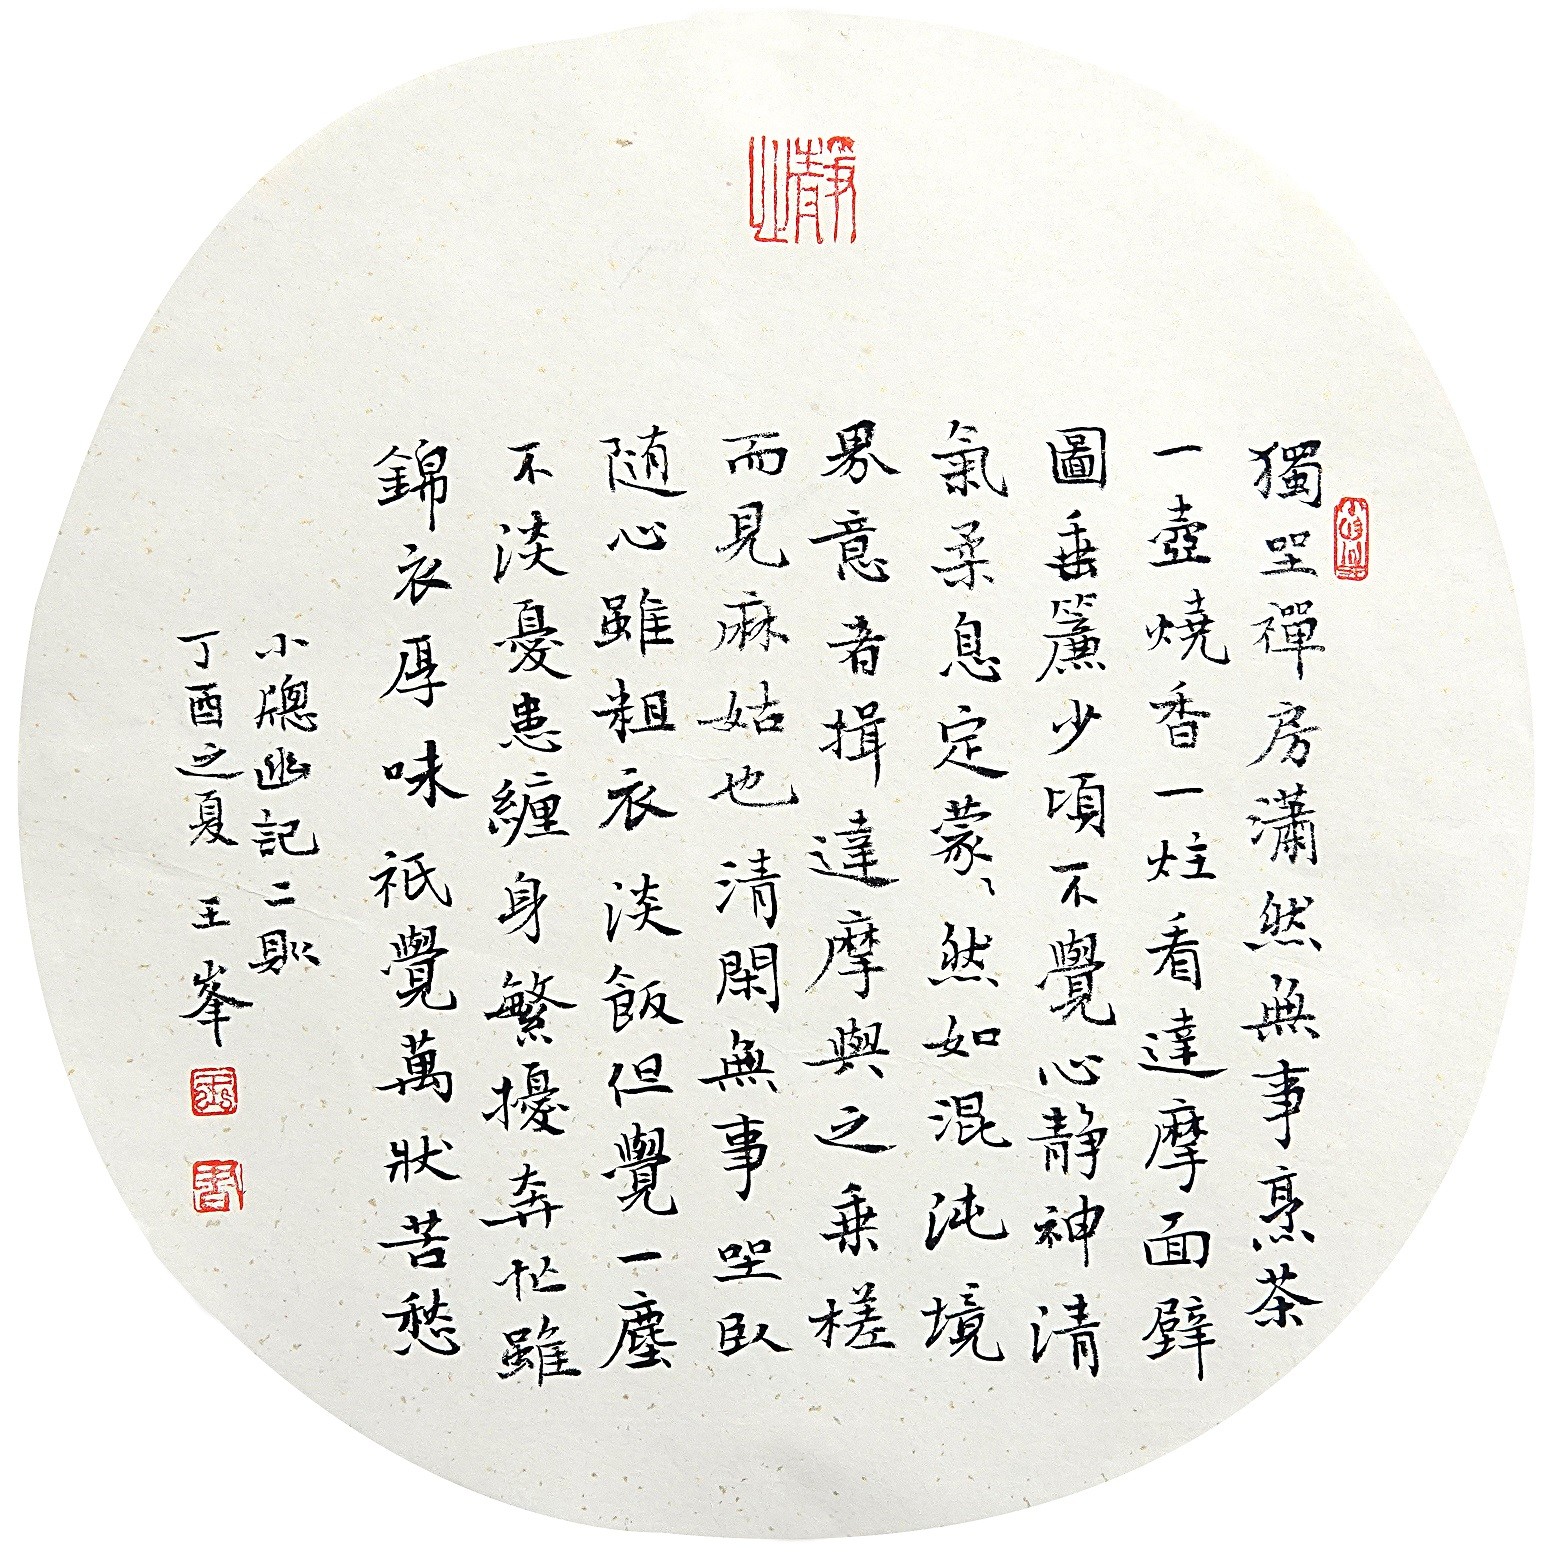 獨坐禪房瀟然無事烹茶
一壺燒香一炷看達摩面壁
圖垂簾少頃不覺心静神清
氣柔息定蒙〻然如混沌境
界意者揖達摩與之乗槎
而見麻姑也清閑無事坐臥
随心雖粗衣淡飯但覺一塵
不淡憂患纏身繁擾奔忙雖
錦衣厚味祇覺萬狀苦愁
小牕幽記二則
丁酉之夏 王峯